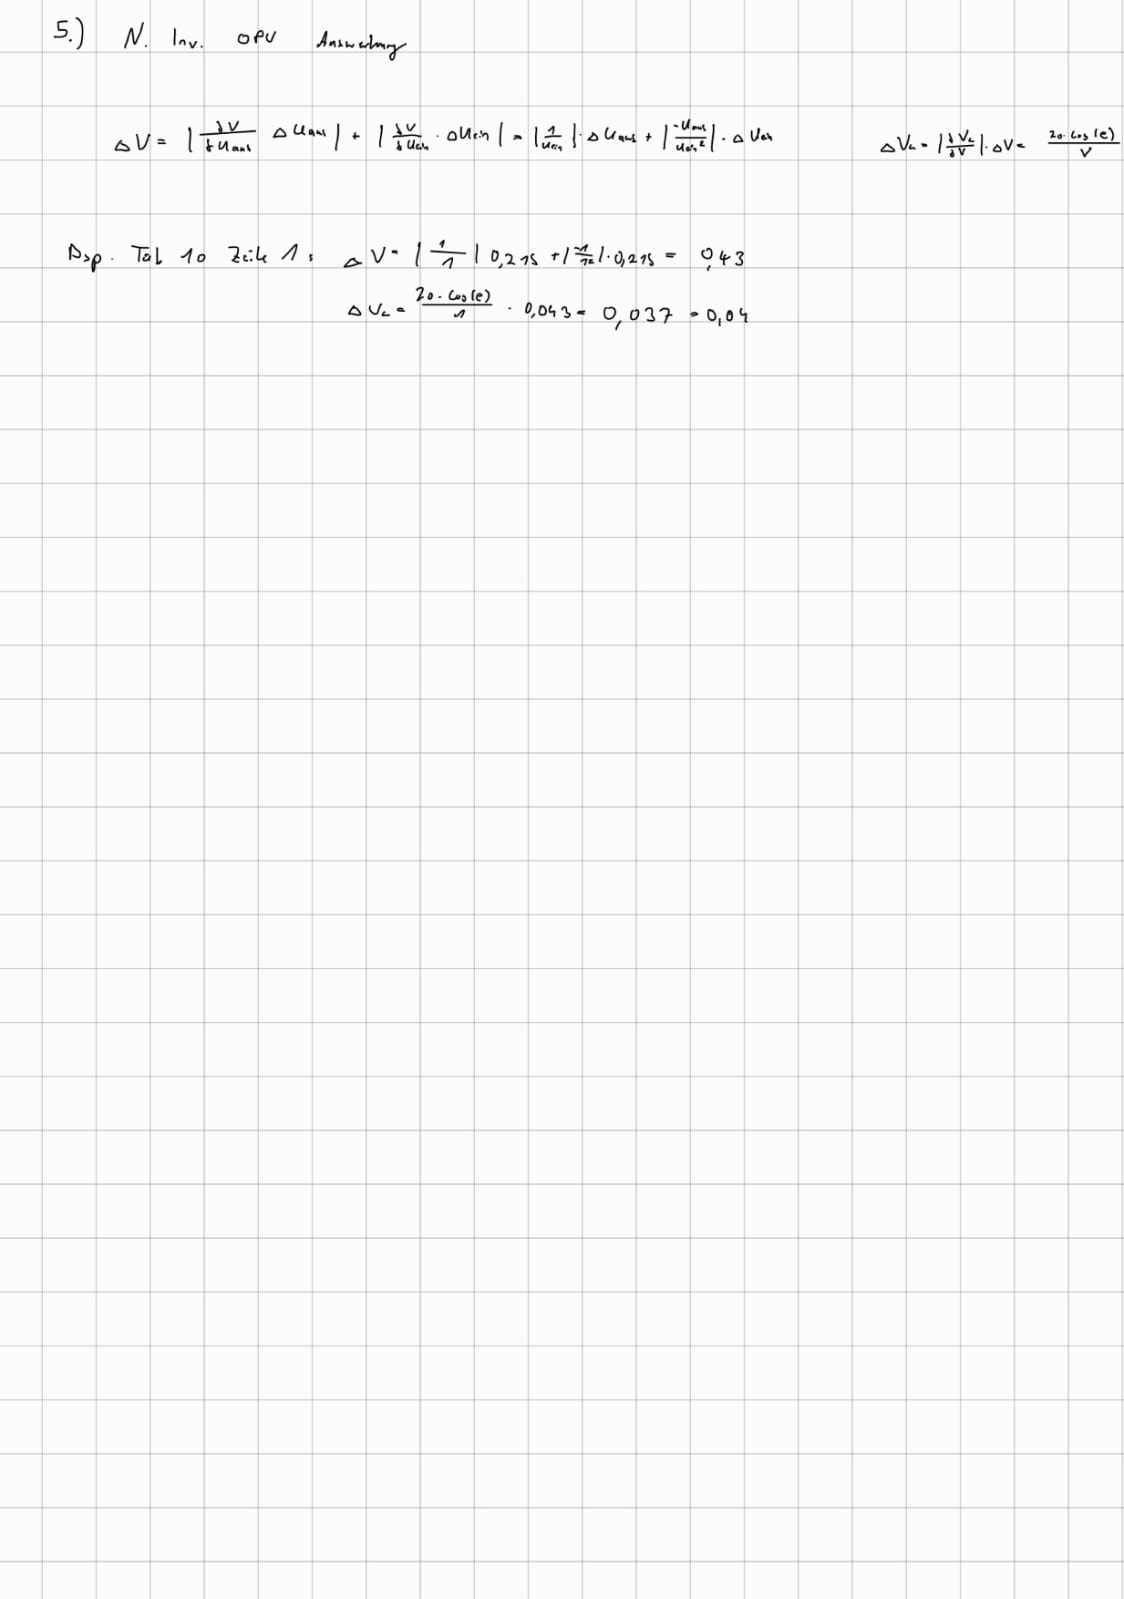 5.) N. Inv. OPV Auswertung
ΔV = |δV/δUaus ΔUaus| + |δV/δUein · ΔUein| = |1/Uein| · ΔUaus + |-Uaus/Uein²| · ΔUein ΔVL = |δVL/δV| · ΔV = 20·log(e)/V
Bsp. Tab 10 Zeile 1: ΔV = |1/1| 0,215 + |-1/1²| · 0,215 = 0,43
ΔVL = 20·log(e)/1 · 0,043 = 0,037 = 0,04